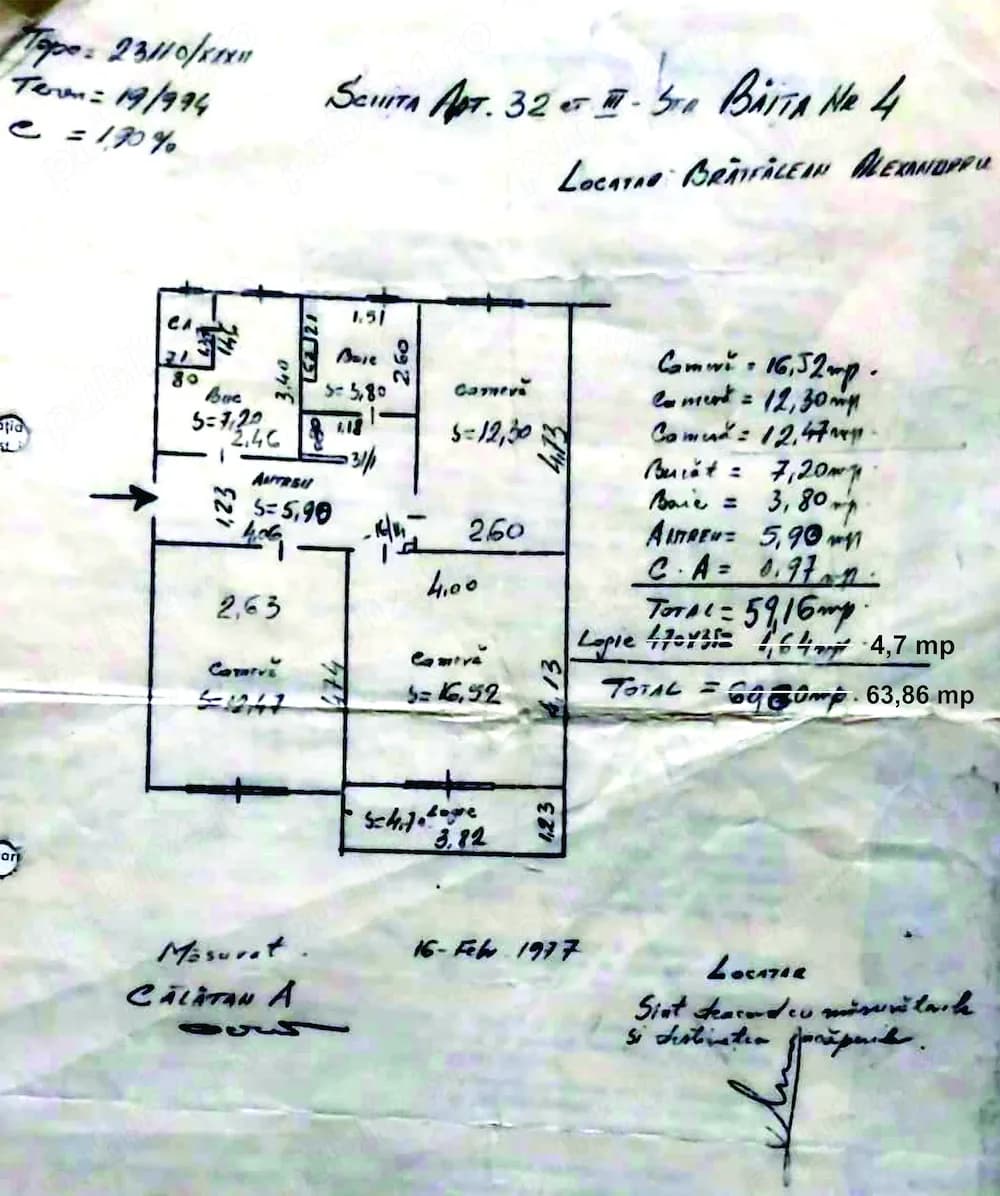 Topo= 23110/XXXII
Teren= 19/994
C = 1,90%
SCHITA APT. 32 et III - Str BĂIȚA Nr 4
LOCATAR BRĂTFĂLEAN ALEXANDRU
CA
71
80
1,51
2,60
Baie
S= 3,80
3,40
Buc
S=7,20
2.46
1.18
Cameră
S=12,30
4,73
2.60
ANTREU
S=5,90
1,23
4,06
2,63
Cameră
S=12,47
4,74
4.00
Cameră
S=16,52
4,13
S=4,70 Logie
3,82
1,23
Cameră = 16,52 mp.
Cameră = 12,30 mp
Cameră = 12,47 mp
Bucăt = 7,20 mp
Baie = 3,80 mp
ANTREU = 5,90 mp
C.A = 0.97 mp.
TOTAL = 59,16 mp.
Logie 4,64 mp 4,7 mp
TOTAL = 63,86 mp
Măsurat.
CĂLĂTAN A
16-Febr 1977
LOCATAR
Sint deacord cu măsurătorile
si destinatia încăperilor.